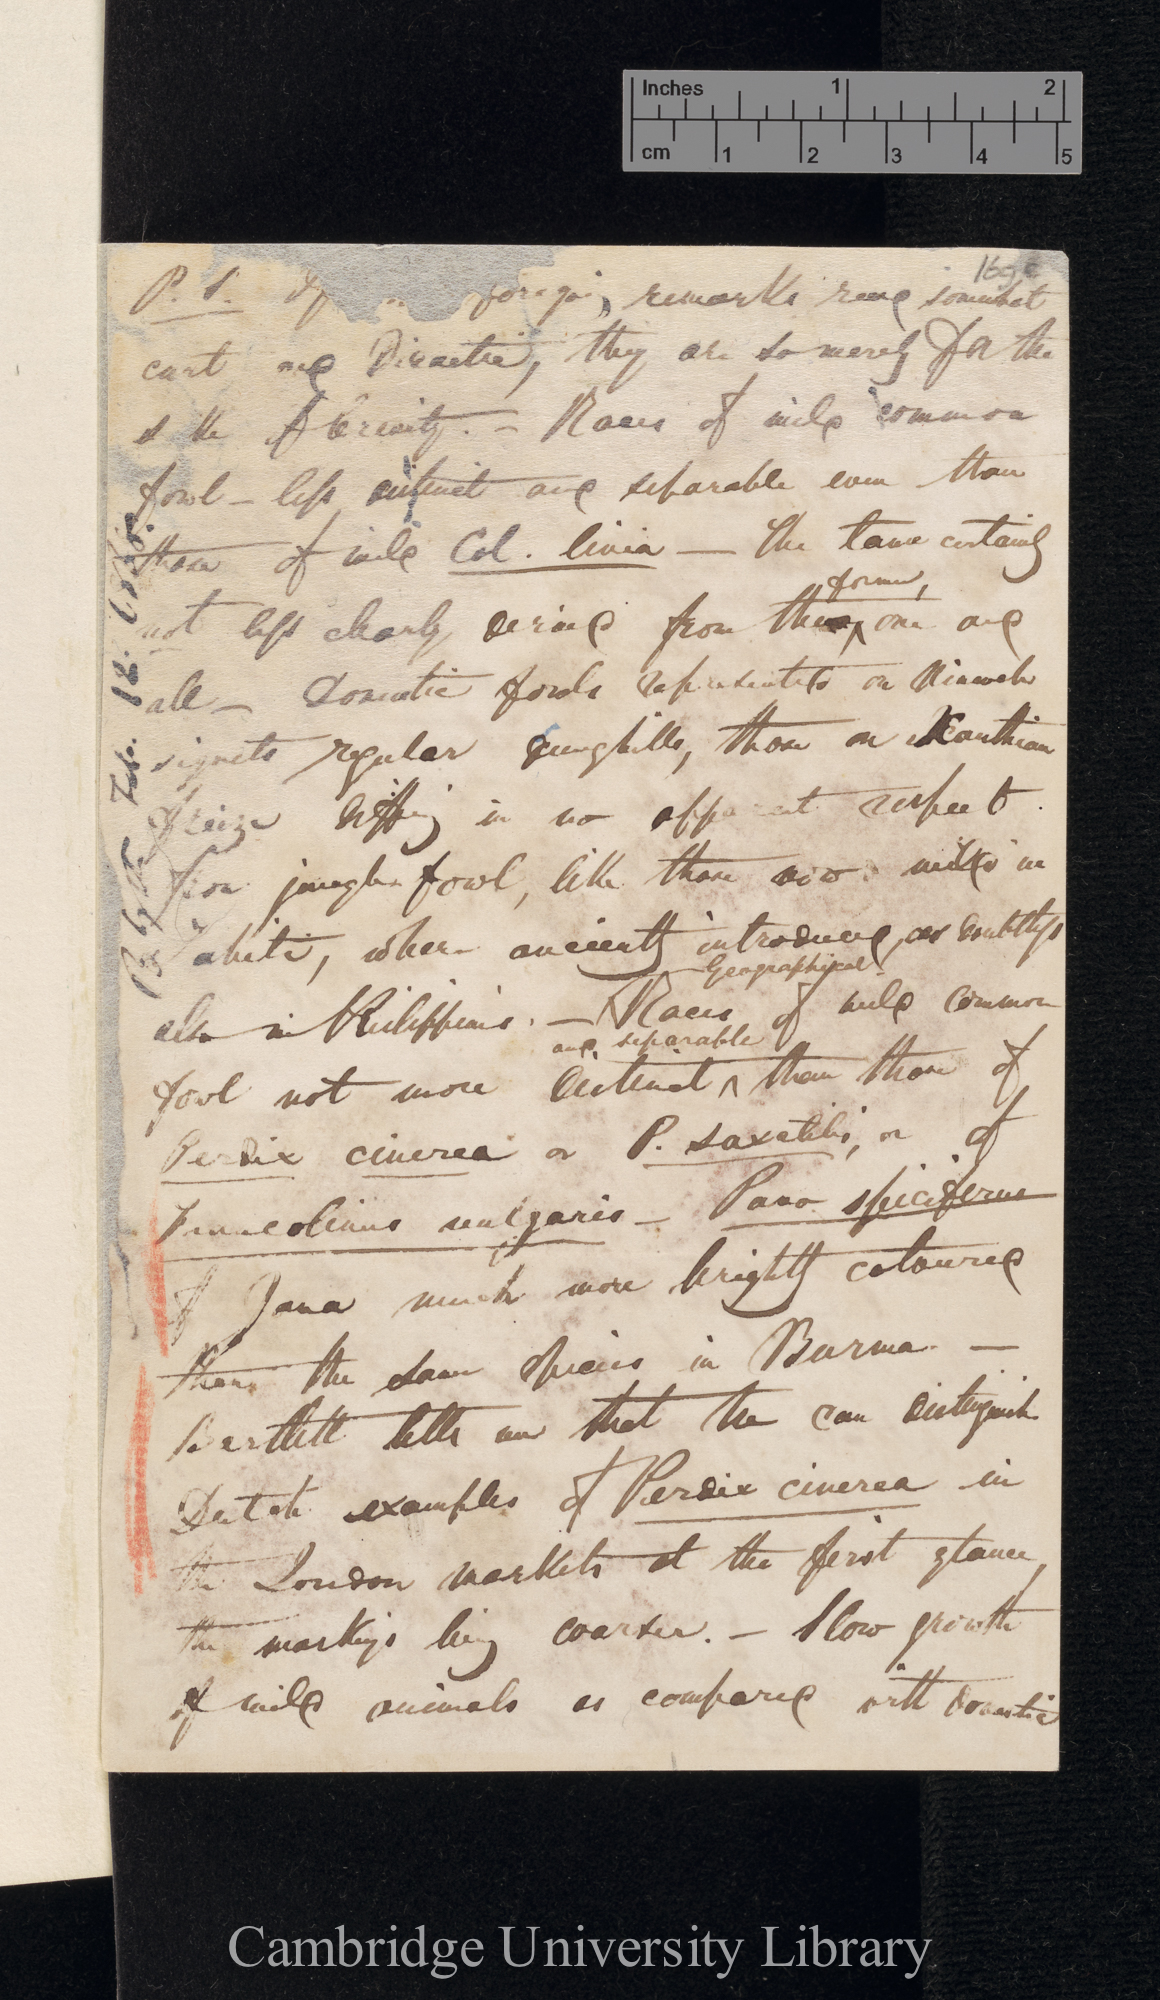 Inches 1 2
cm 1 2 3 4 5
169c
P. S. If foregoing remarks read somewhat
curt and Dictative, they are so merely for the
sake of brevity. – Races of wild common
fowl – less distinct and separable even than
those of wild Col. livia — the tame certainly
not less clearly derived from the former, one and
all – Domestic fowls represented on Nineveh
signets regular dunghills, those on Xanthian
frieze differing in no apparent respect
from jungle fowl, like those now wild in
Tahiti, where anciently introduced, as doubtless
also in Philippines. — Geographical Races of wild common
fowl not more distinct and separable than those of
Perdix cinerea or P. saxatilis, or of
Francolinus vulgaris – Pavo spiciferus
of Java much more brightly coloured
than the same species in Burma. —
Bartlett tells me that he can distinguish
Dutch examples of Perdix cinerea in
the London markets at the first glance,
the markings being coarser. – Slow growth
of wild animals as compared with domestic
Blyth Feb. 18.
Cambridge University Library